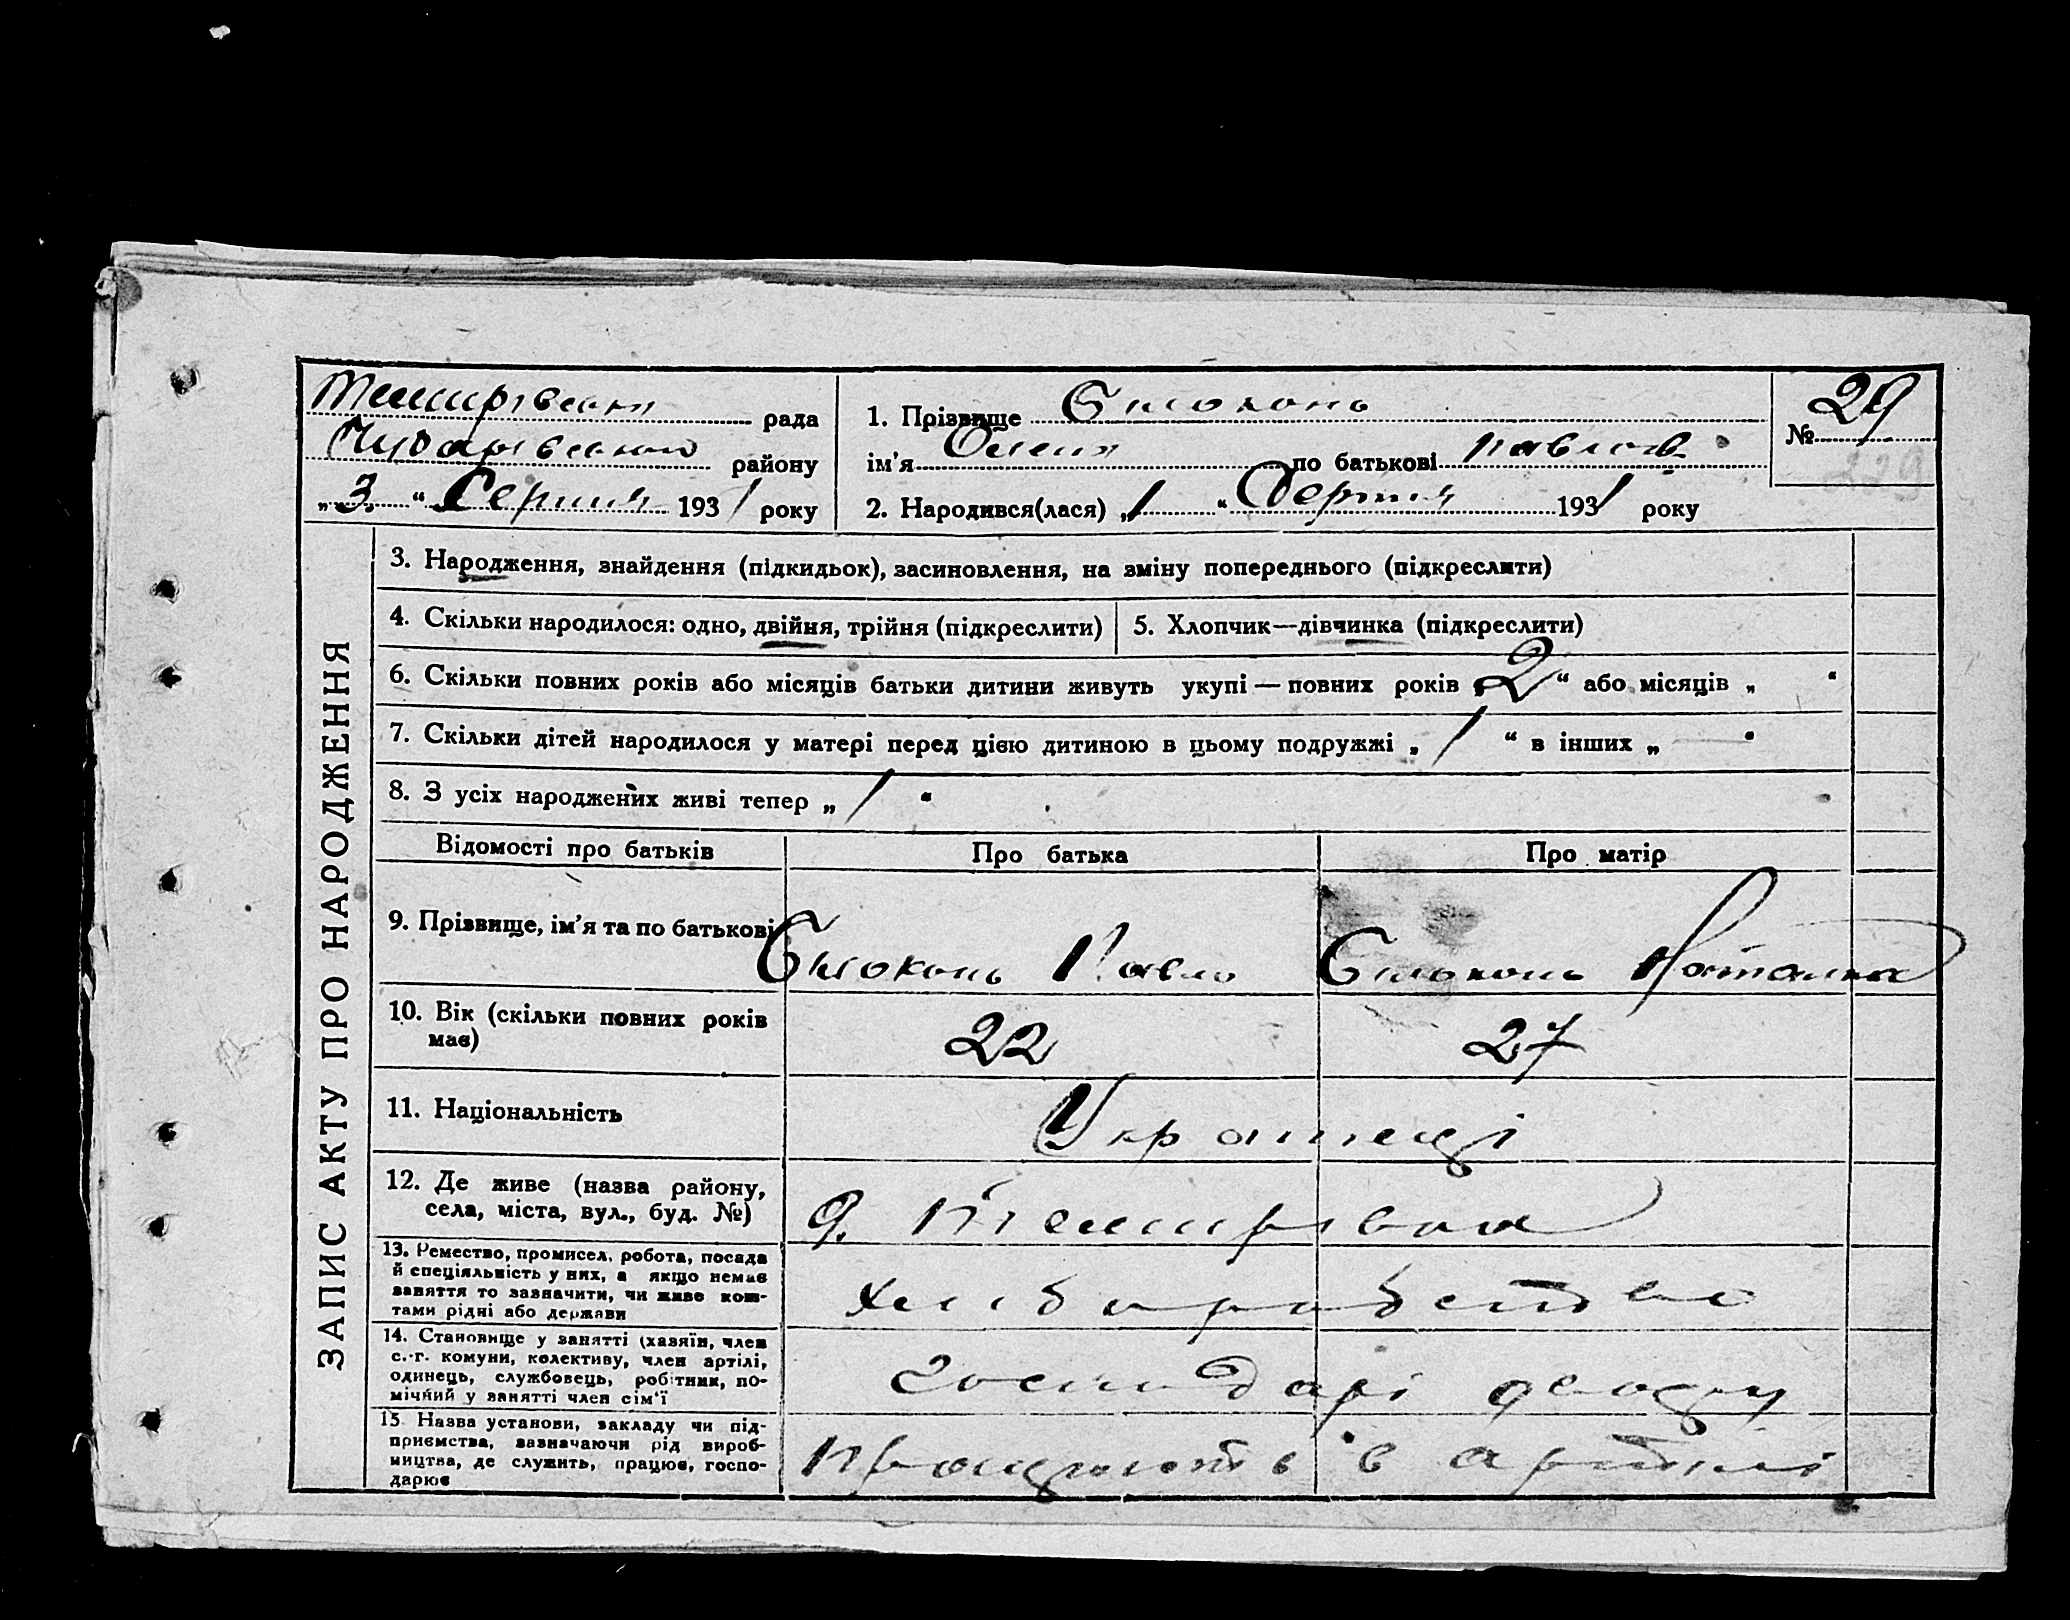 Темирівська рада
Чубарівського району
„ 3 “ Серпня 1931 року
1. Прізвище Білоконь
ім'я Олена по батькові Павлов.
2. Народився(лася) „ 1 “ Серпня 1931 року
№ 29
229
ЗАПИС АКТУ ПРО НАРОДЖЕННЯ
3. Народження, знайдення (підкидьок), засиновлення, на зміну попереднього (підкреслити)
4. Скільки народилося: одно, двійня, трійня (підкреслити)
5. Хлопчик—дівчинка (підкреслити)
6. Скільки повних років або місяців батьки дитини живуть укупі — повних років „ 2 “ або місяців „ “
7. Скільки дітей народилося у матері перед цією дитиною в цьому подружжі „ 1 “ в інших „ — “
8. З усіх народжених живі тепер „ 1 “
Відомості про батьків Про батька Про матір
9. Прізвище, ім'я та по батькові Білоконь Павло Білоконь Наталка
10. Вік (скільки повних років
має) 22 27
11. Національність Українці
12. Де живе (назва району,
села, міста, вул., буд. №) с. Темирівка
13. Ремество, промисел, робота, посада
й спеціяльність у них, а якщо немає
заняття то зазначити, чи живе кош-
тами рідні або держави
хліборобство
14. Становище у занятті (хазяїн, член
с.-г. комуни, колективу, член артілі,
одинець, службовець, робітник, по-
мічний у занятті член сім'ї
господарі двору
15. Назва установи, закладу чи під-
приємства, зазначаючи рід вироб-
ництва, де служить, працює, госпо-
дарює
працюють в артілі